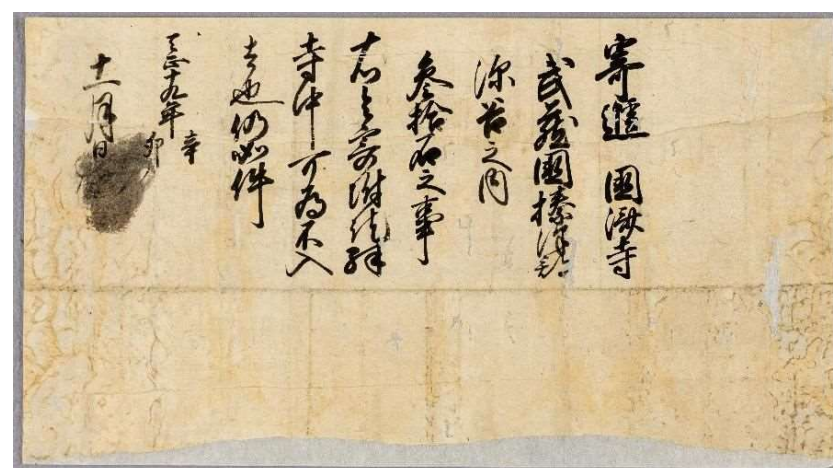 寄進 國済寺
武蔵國榛澤郡
深谷之内
参拾石之事
右令寄附訖殊
寺中可為不入
者也仍如件
天正十九年辛卯
十一月日